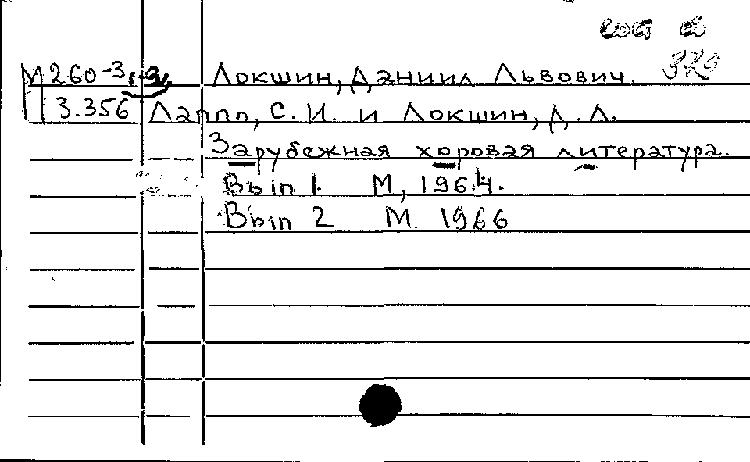 329
М260-3 Локшин, Даниил Львович.
3.356 Лаппо, С. И. и Локшин, Д. Л.
Зарубежная хоровая литература.
Вып 1. М, 1964.
Вып 2 М. 1966